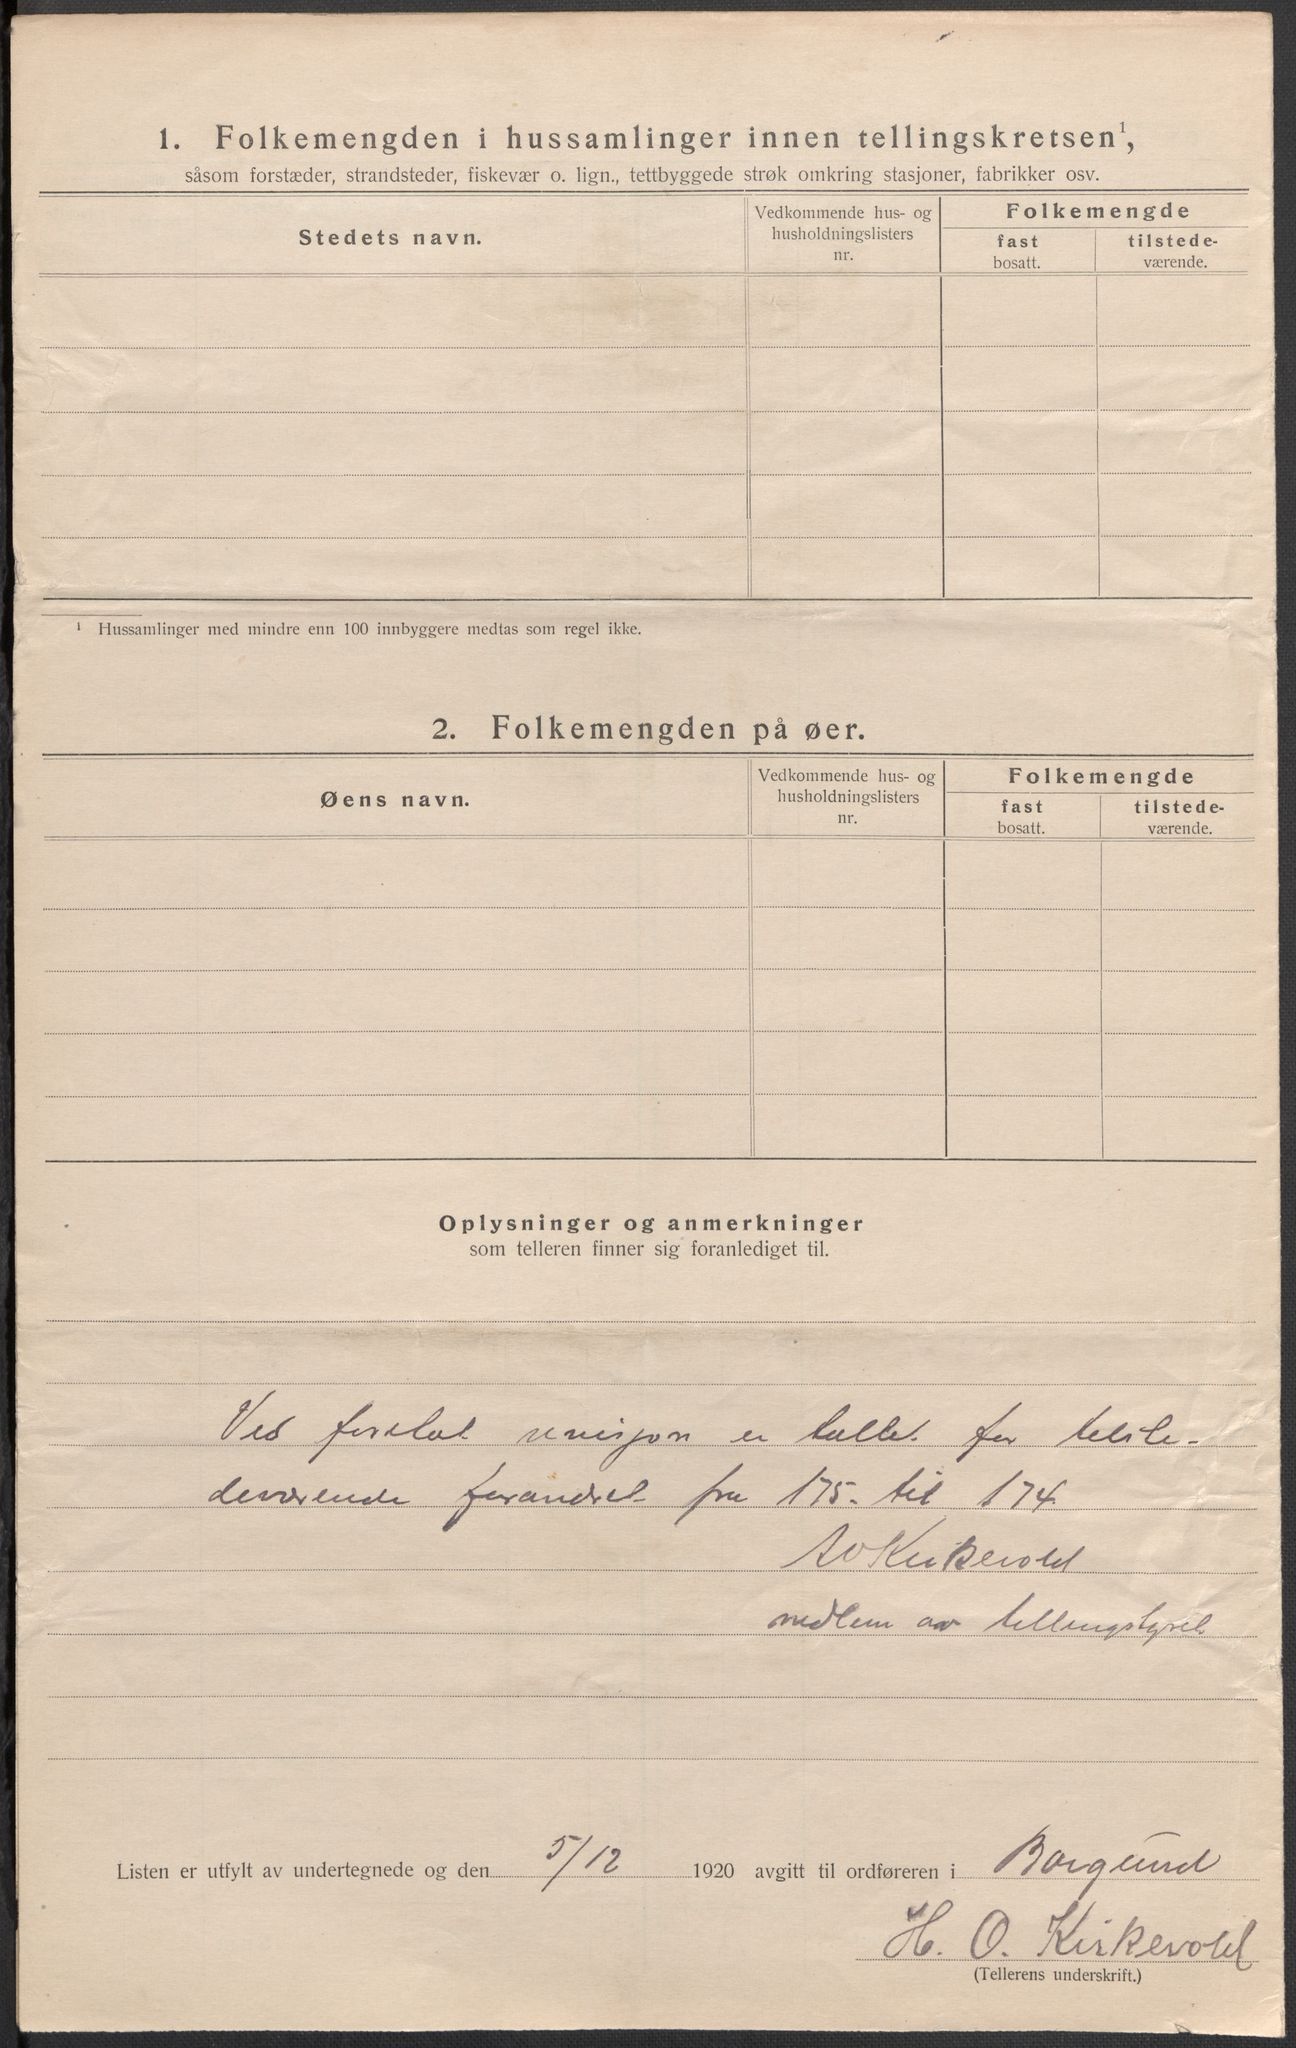 1. Folkemengden i hussamlinger innen tellingskretsen¹,
såsom forstæder, strandsteder, fiskevær o. lign., tettbyggede strøk omkring stasjoner, fabrikker osv.
Stedets navn.
Vedkommende hus- og
husholdningslisters
nr.
Folkemengde
fast
bosatt.
tilstede-
værende.
¹ Hussamlinger med mindre enn 100 innbyggere medtas som regel ikke.
2. Folkemengden på øer.
Øens navn.
Vedkommende hus- og
husholdningslisters
nr.
Folkemengde
fast
bosatt.
tilstede-
værende.
Oplysninger og anmerkninger
som telleren finner sig foranlediget til.
Ved foretat revisjon er tallet for tilste-
deværende forandret fra 175 til 174
Kirkevold
medlem av tellingstyret
Listen er utfylt av undertegnede og den 5/12 1920 avgitt til ordføreren i Borgund
H. O. Kirkevold
(Tellerens underskrift.)